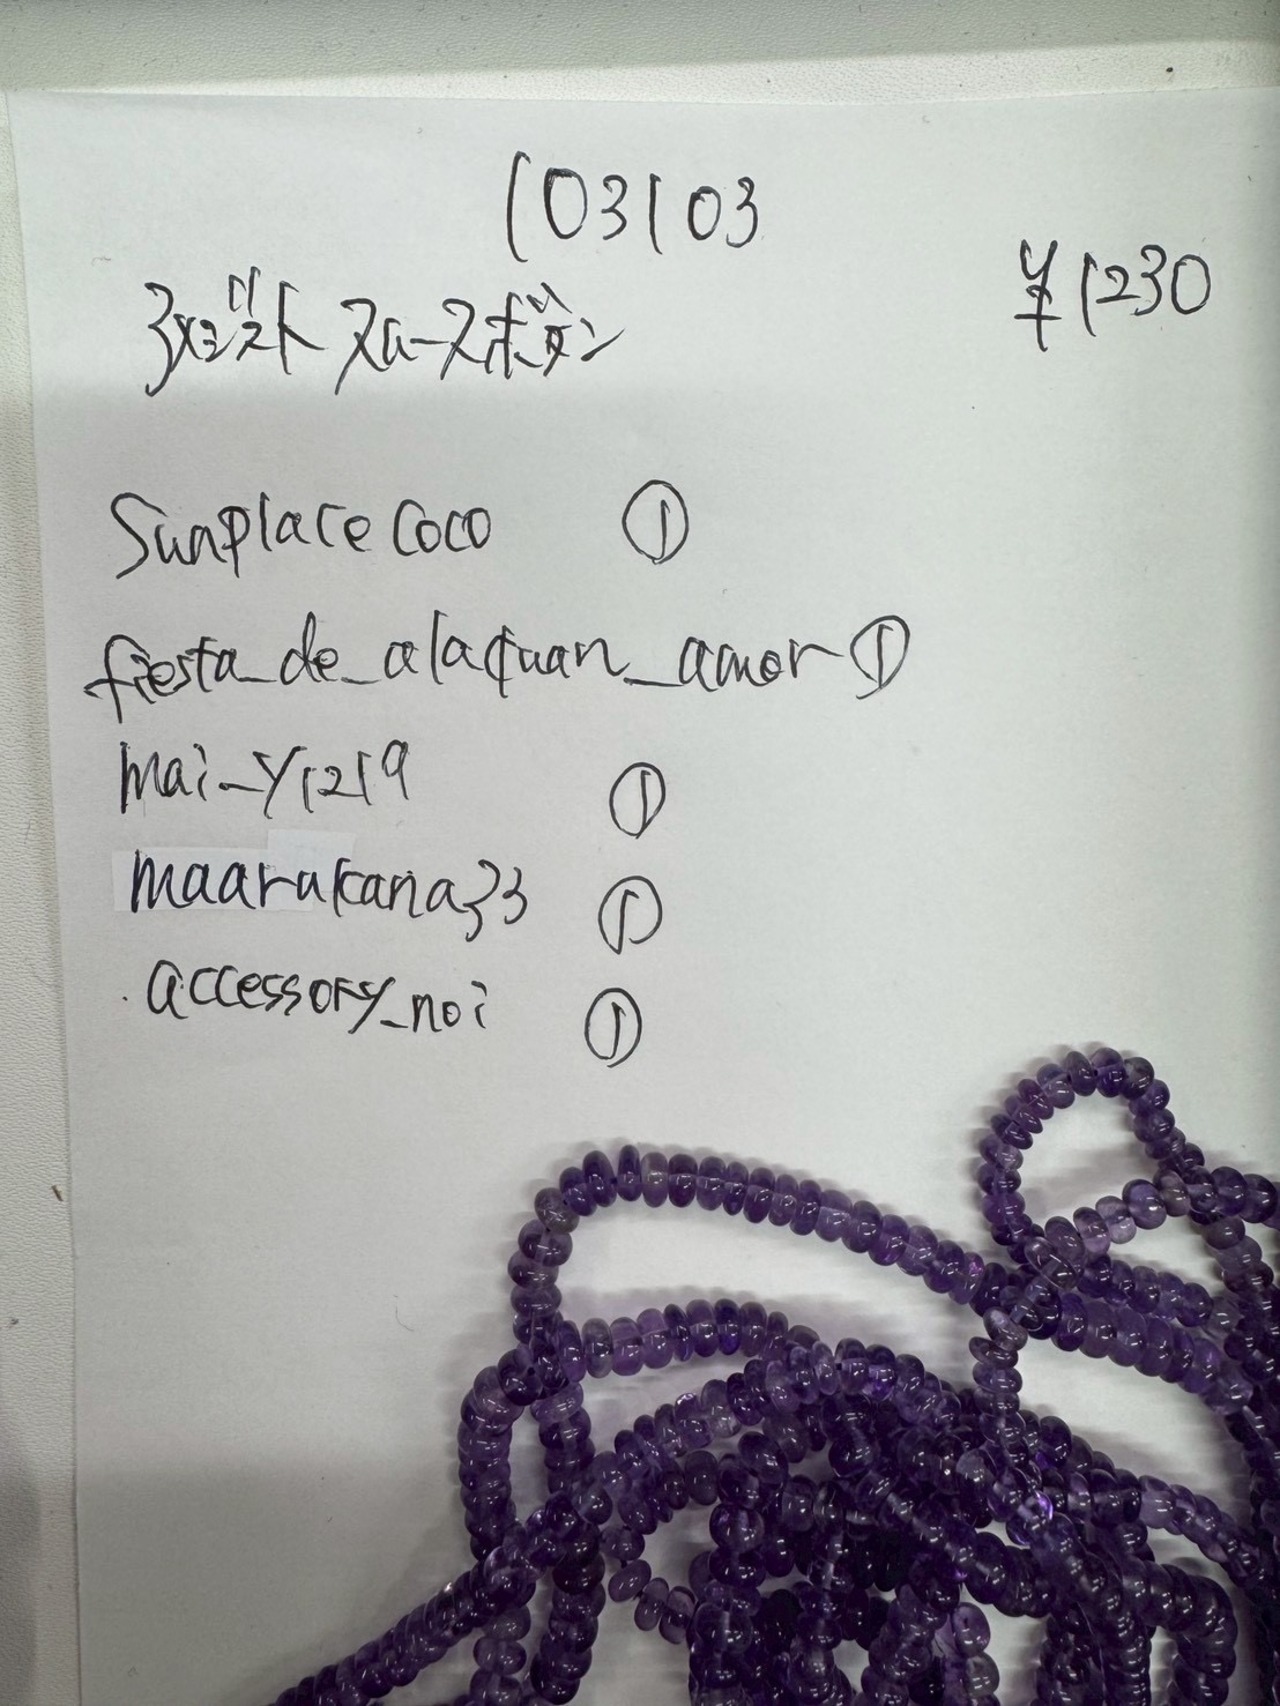 103103
¥1230
Sunplacecoco ①
fiesta_de_alaquan_amor ①
mai_y1219 ①
maarukana33 ①
accessory_noi ①